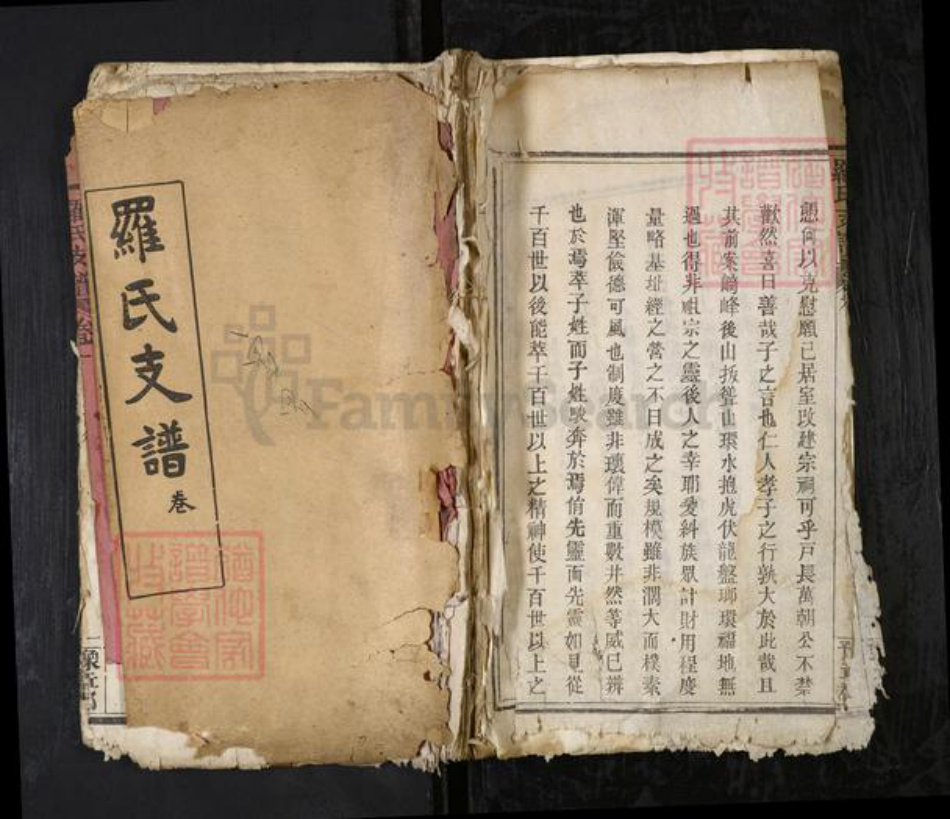 羅氏支譜
卷
懸何以克慰願己居室改建宗祠可乎戸長萬朝公不禁
歡然喜曰善哉子之言也仁人孝子之行孰大於此哉且
其前案錦峰後山扳聳山環水抱虎伏龍盤瑯環福地無
過也得非祖宗之靈後人之幸耶爰糾族眾計財用程度
量略基址經之營之不日成之矣規模雖非濶大而樸素
渾堅儉德可風也制度雖非瓌偉而重數井然等威已辨
也於焉萃子姓而子姓駿奔於焉侑先靈而先靈如見從
千百世以後能萃千百世以上之精神使千百世以上之
豫章郡
FamilySearch